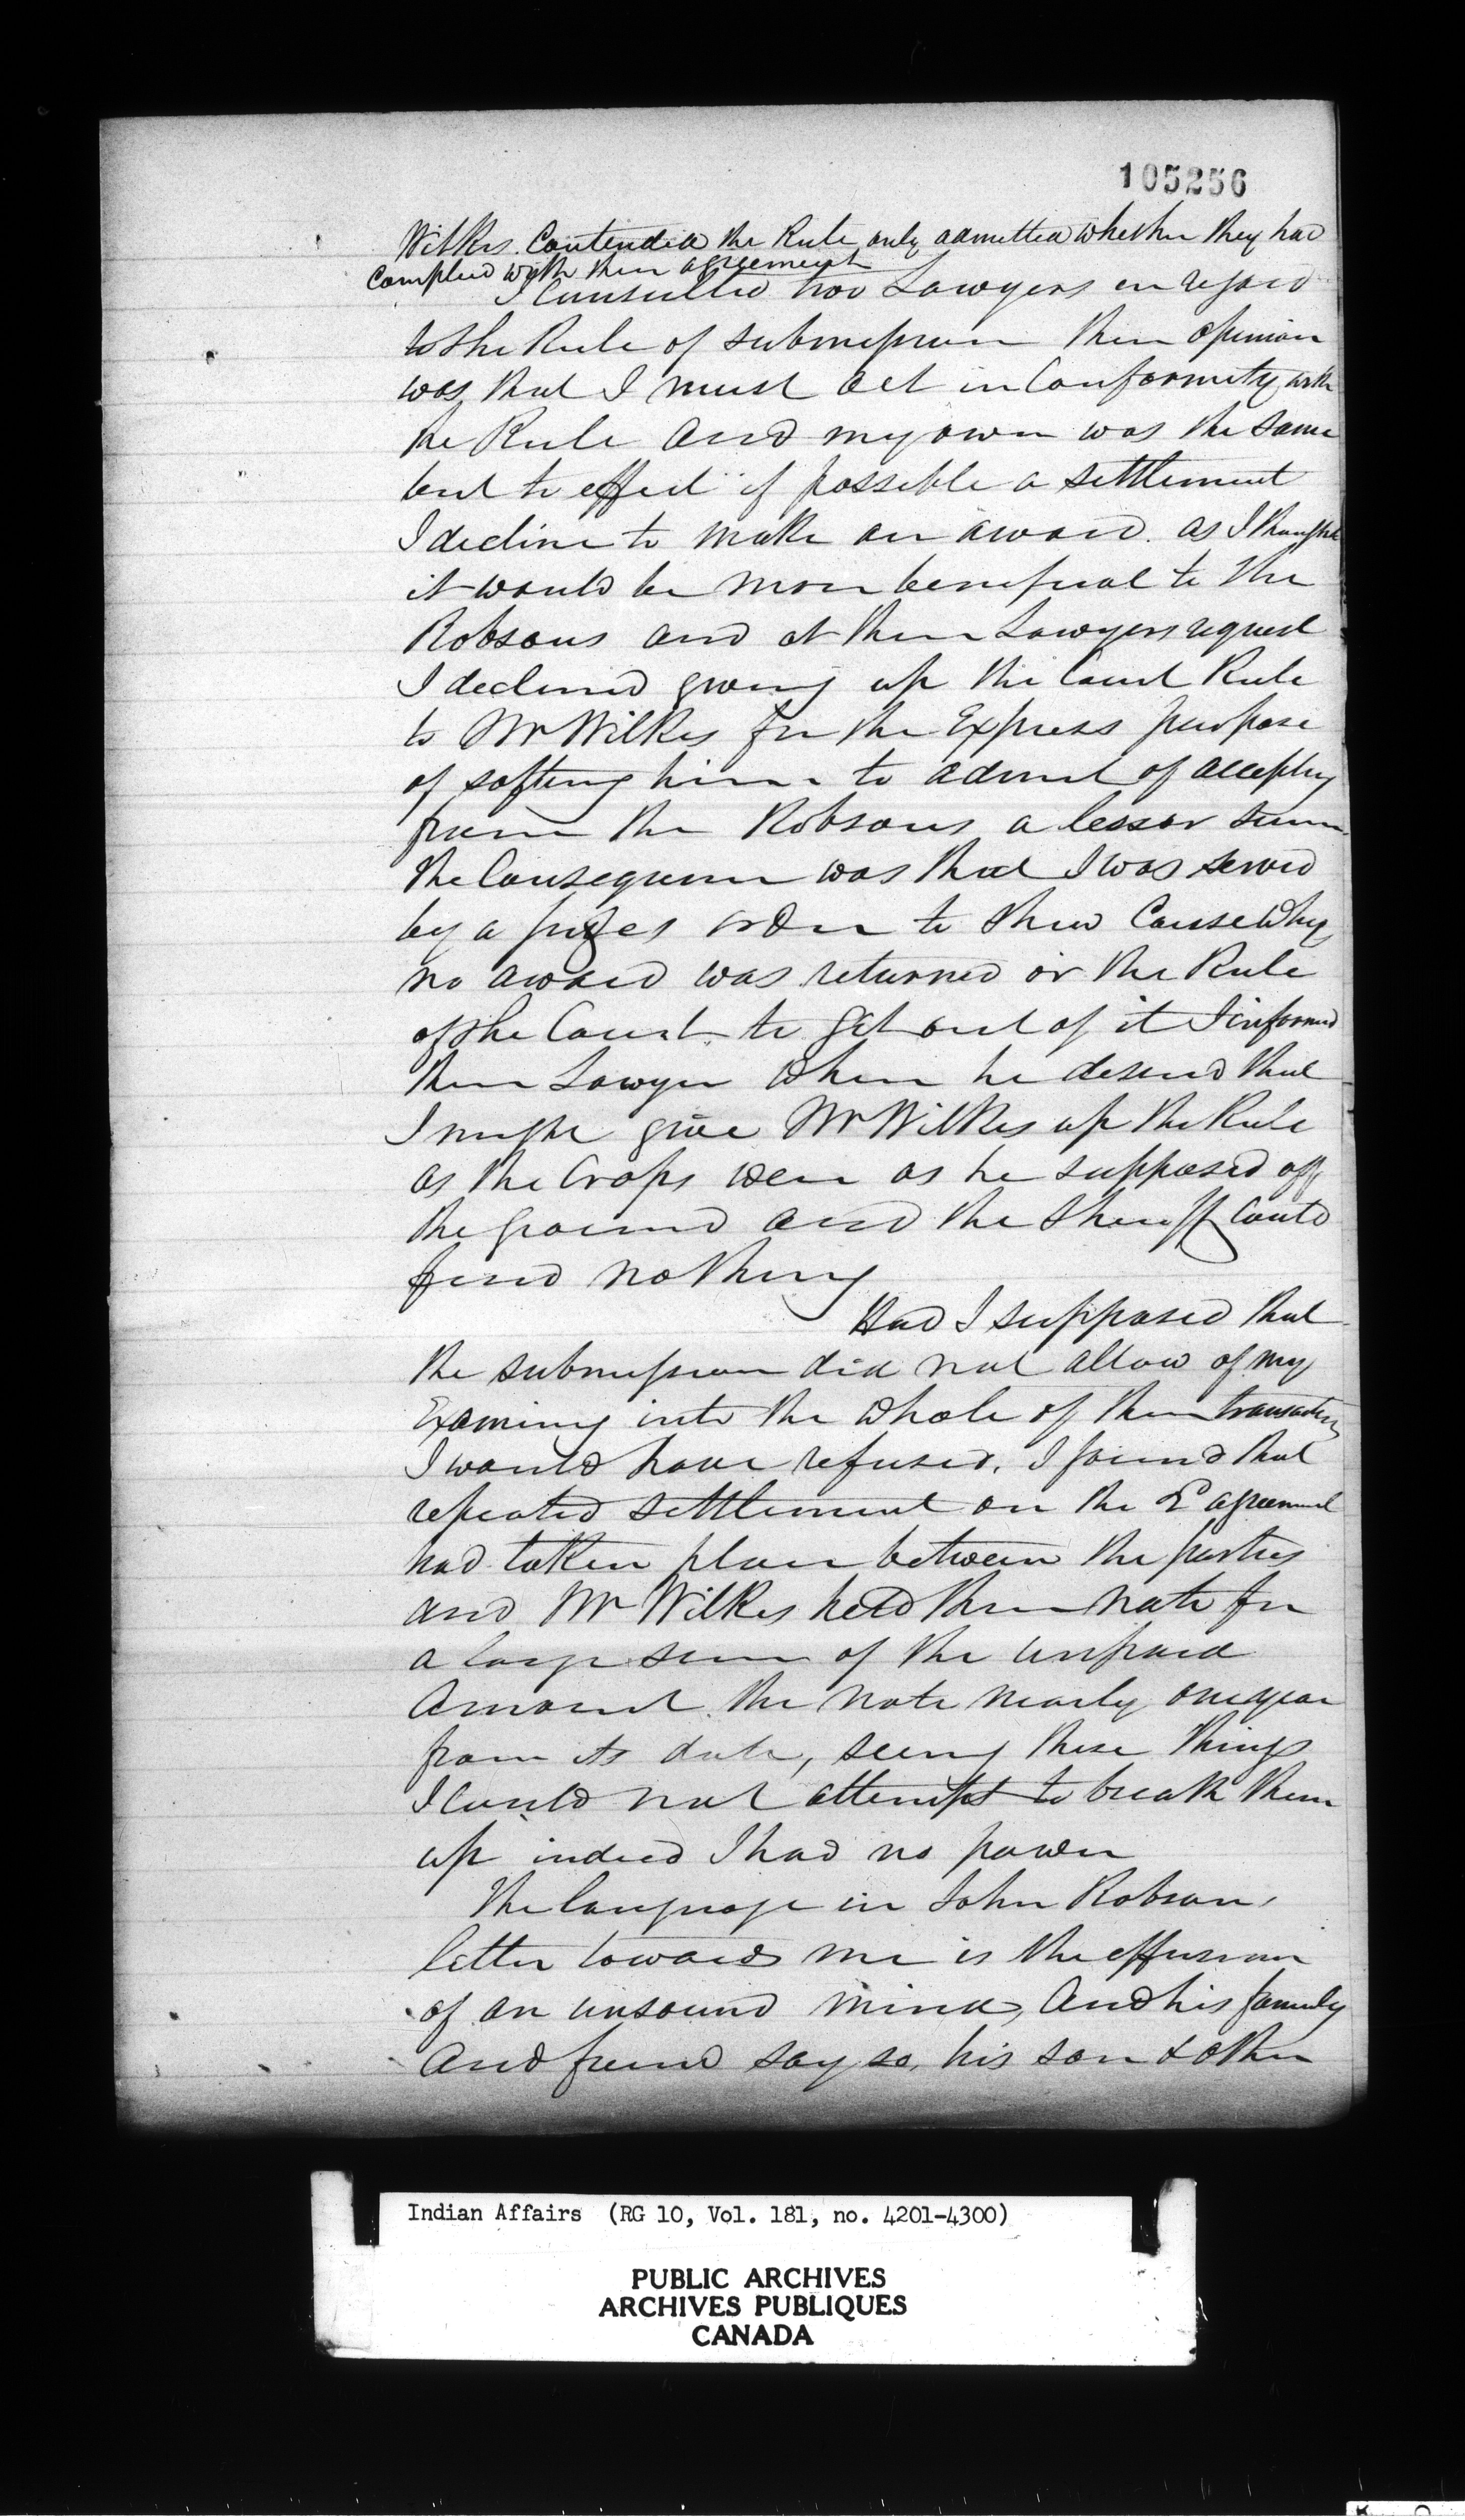 105256
Wilkes. Contended the Rule only admitted whether they had
complied with their agreement
I Consulted two Lawyers in regard
to the Rule of submission their opinion
was that I must act in Conformity with
the Rule and my own was the same
but to effect if possible a settlement
I decline to make an award. as I thought
it would be more beneficial to the
Robsons and at their Lawyers request
I declined giving up the Court Rule
to Mr Wilkes for the Express purpose
of softing him to admit of accepting
from the Robsons a lesser sum.
the Consequence was that I was served
by a Judges order to shew Cause Why
no award was returned or the Rule
of the Court. to get out of it I informed
their Lawyer When he desired that
I might give Mr Wilkes up the Rule
as the Crops were as he supposed off
the ground and the Sheriff Could
find nothing
Had I supposed that
the submission did not allow of my
Examining into the Whole of their transactions
I would have refused. I found that
repeated settlement on the agreement
had taken place between the parties
and Mr Wilkes held their note for
a large sum of the unpaid
Amount. the note nearly one year
from its date, seeing these things
I Could not attempt to break them
up indeed I had no power
The language in John Robson,
letter towards me is the effusion
of an unsound mind, And his family
And friend say so, his son & other
Indian Affairs (RG 10, Vol. 181, no. 4201-4300)
PUBLIC ARCHIVES
ARCHIVES PUBLIQUES
CANADA